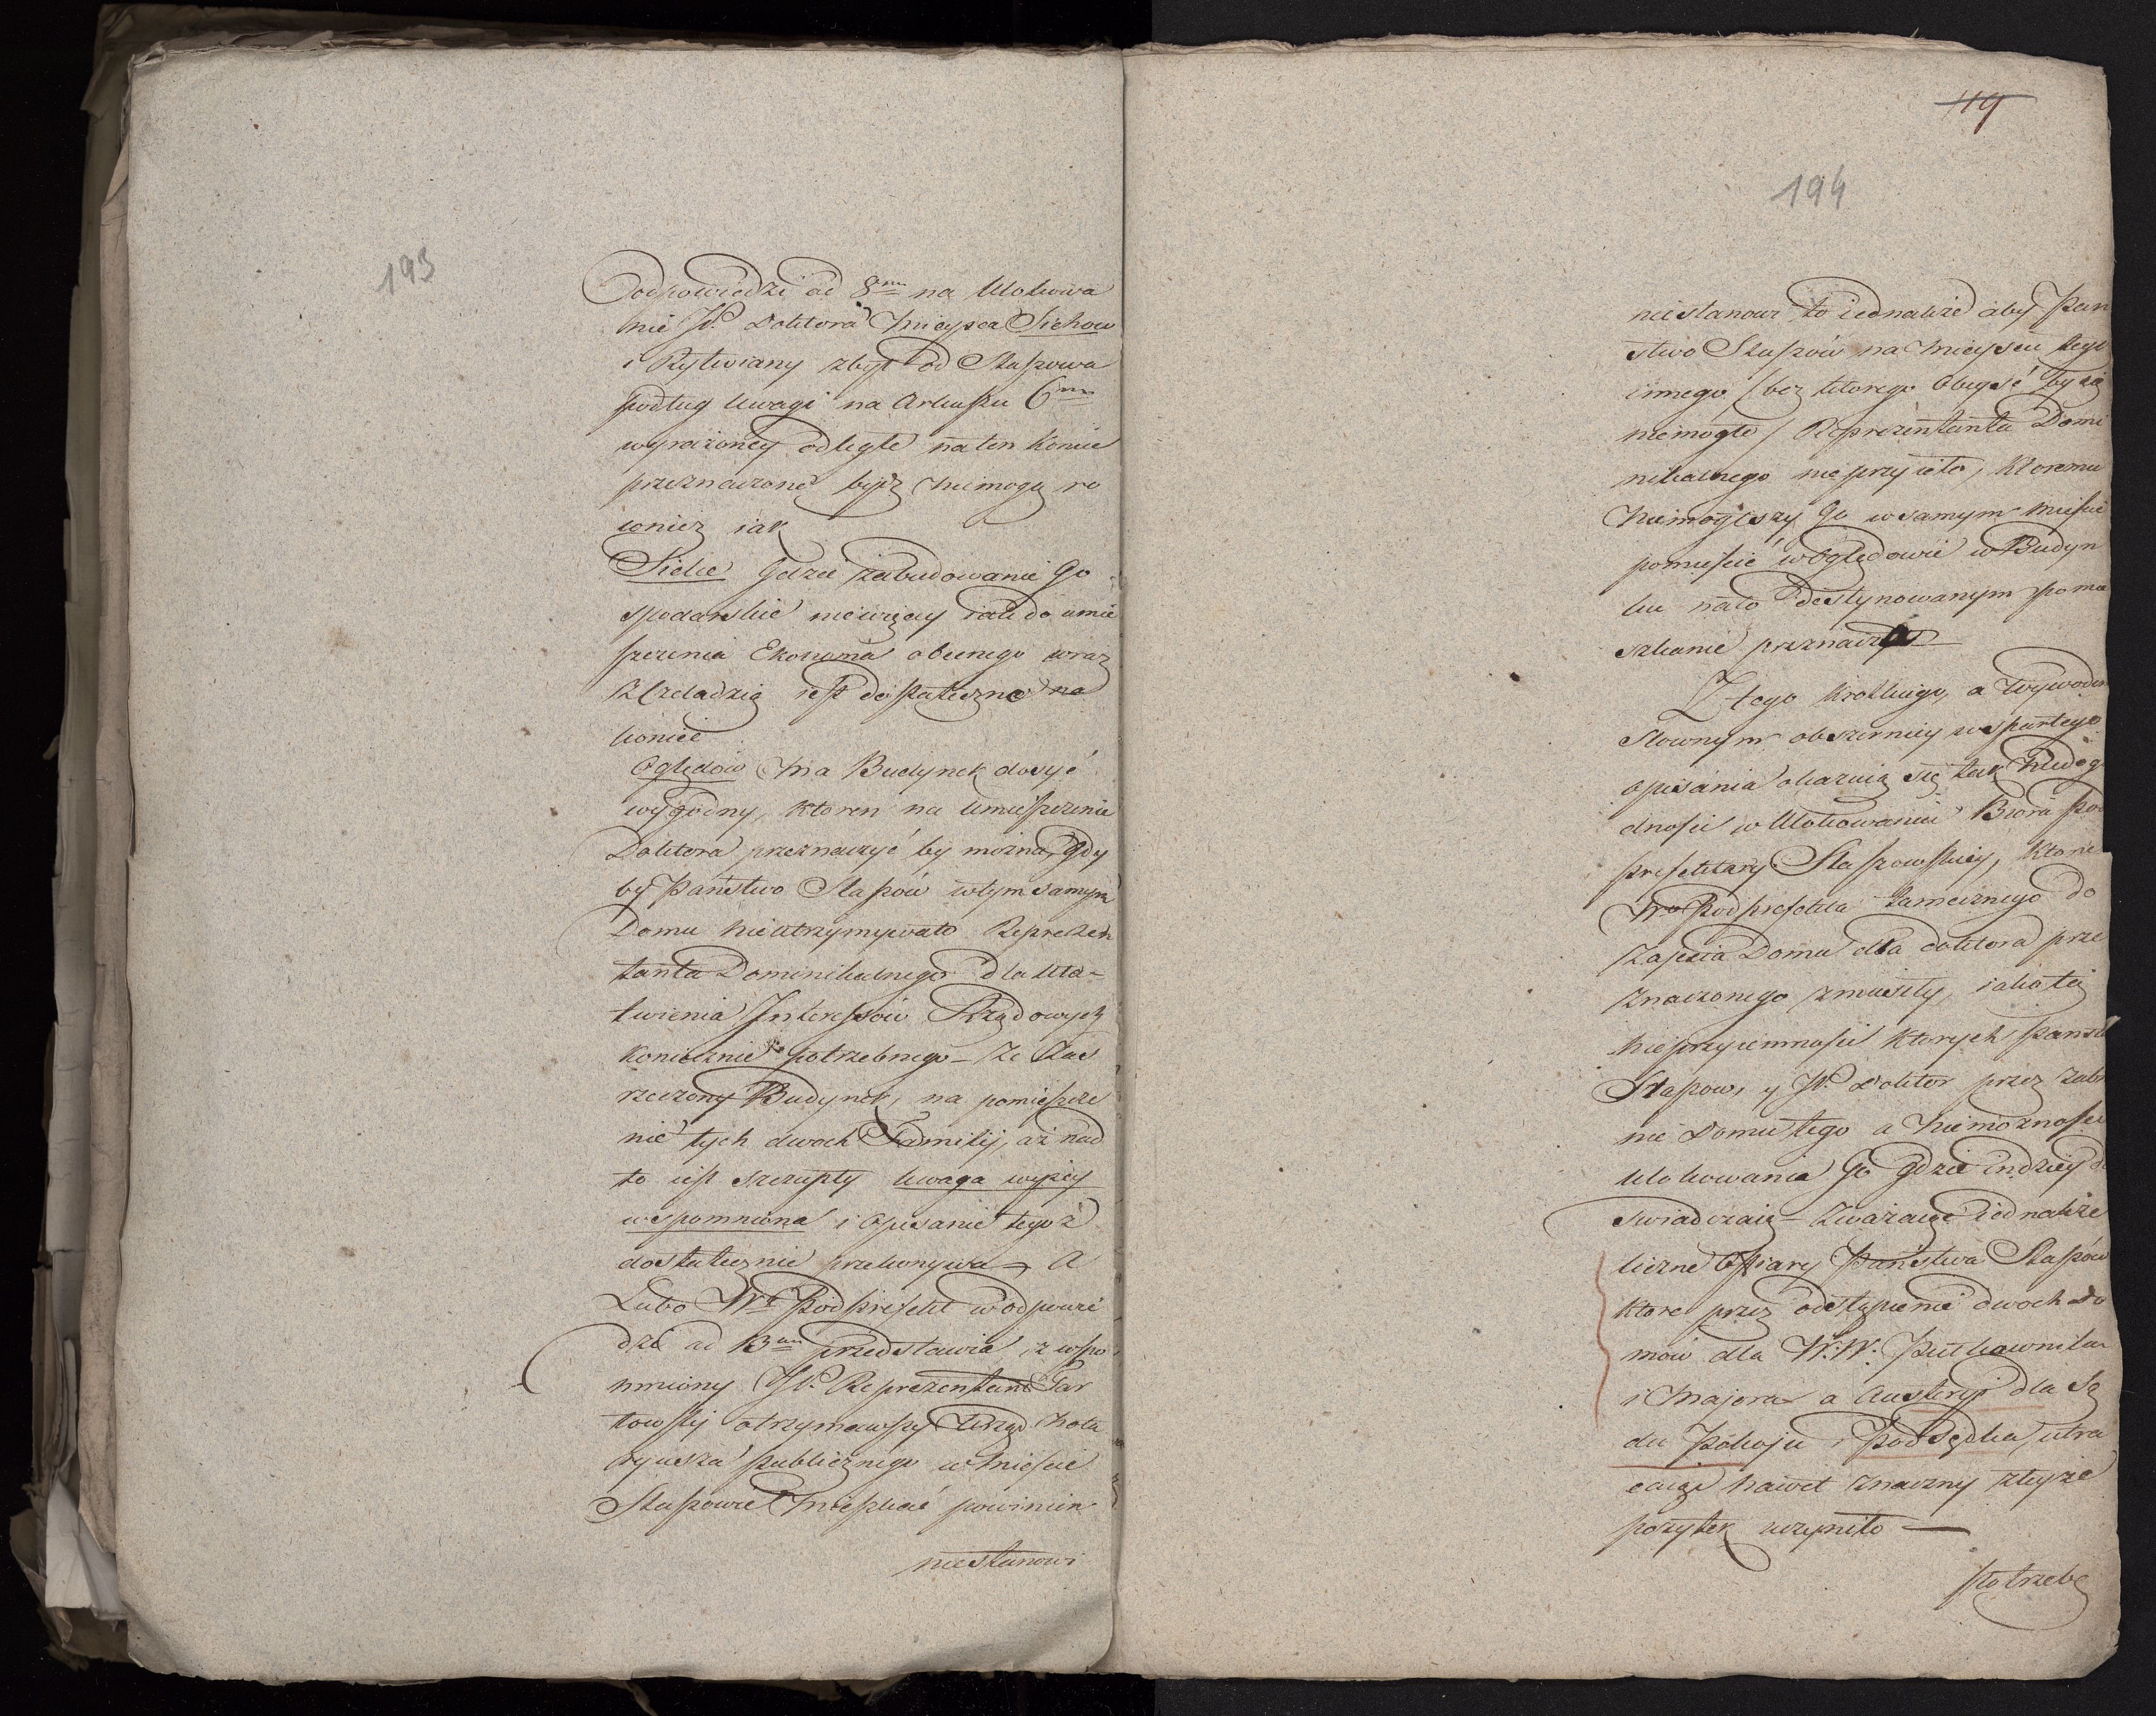 193
Odpowiedzi ad 8um na Ulokowa
nie JP. Doktora mieysca Sichow
i Rytwiany zbyt od Staszowa
podług Uwagi na Arkuszu 6um
wyrażoney odległe na ten koniec
przeznaczone bydz niemogą ro
wnież iak
Sielec gdzie zabudowanie Go
spodarskie niewięcey iak do umie
szczenia Ekonoma obecnego wraz
z Czeladzią iest dostateczne na
koniec
Oględow ma Budynek dosyć
wygodny, ktoren na umieszczenie
Doktora przeznaczyć by można, gdy
by Państwo Staszów w tym samym
Domu nieutrzymywało Reprezen
tanta Dominikalnego dla uła-
twienia Interessów Rządowych
koniecznie potrzebnego – że zas
rzeczony Budynek, na pomieszcze
nie tych dwoch Familij, aż nad
to iest szczupły uwaga wyżey
wspomniona i Opisanie tegoż
dostatecznie przekonywa – A
Lubo Wy Podprefekt w odpowie
dzi ad 13um przedstawia, że wspo
mniony JP. Reprezentant Gar
towski otrzymawszy Urząd Nota
ryusza publicznego w Mieście
Staszowie mieszkać powinien
niestanowi
119
194
niestanowi to iednakże aby Pan
stwo Staszów na mieyscu tego
innego /bez ktorego Obeyść by się
niemogło/ Reprezentanta Domi
nikalnego nieprzyieło, ktoremu
niemogłszy go w samym mieście
pomieścić w Oględowie w Budyn
ku na to destynowanym pomie
szkanie przeznacza
Z tego krotkiego, a wywodem
Słownym obszerniey wspartego
opisania okazuią się tak niedog
dności w Ulokowaniu Biora Pod
prefektury Staszowskiey, ktore
Wo Podprefekta tameiznego do
zaięcia Domu dla doktora prze
znaczonego zmusiły, iako też
nieprzyiemności ktorych Panst
Staszow, y JP. Doktor przez zabr
nie Domu tego a niemożnosci
Ulokowania Go gdzie indziey do
swiadczaią – Zważaiąc iednakże
liczne Ofiary Państwa Staszów
ktore przez odstąpienie dwoch Do
mow dla W.W. Pułkownika
i Majora a Austeryi dla Są
du Pokoju i Podsędka, utra
caiąc nawet znaczny ztychże
pożytek uczyniło —
Potrzebę